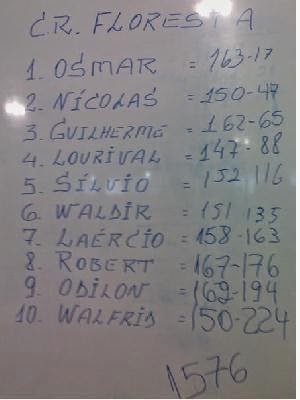 C.R. FLORESTA
1. OSMAR = 163-17
2. NÍCOLAS = 150-47
3. GUILHERME = 162-65
4. LOURIVAL = 147-88
5. SÍLVIO = 152 116
6. WALDIR = 151 135
7. LAÉRCIO = 158-163
8. ROBERT = 167-176
9. ODILON = 169-194
10. WALFRID = 150-224
1576